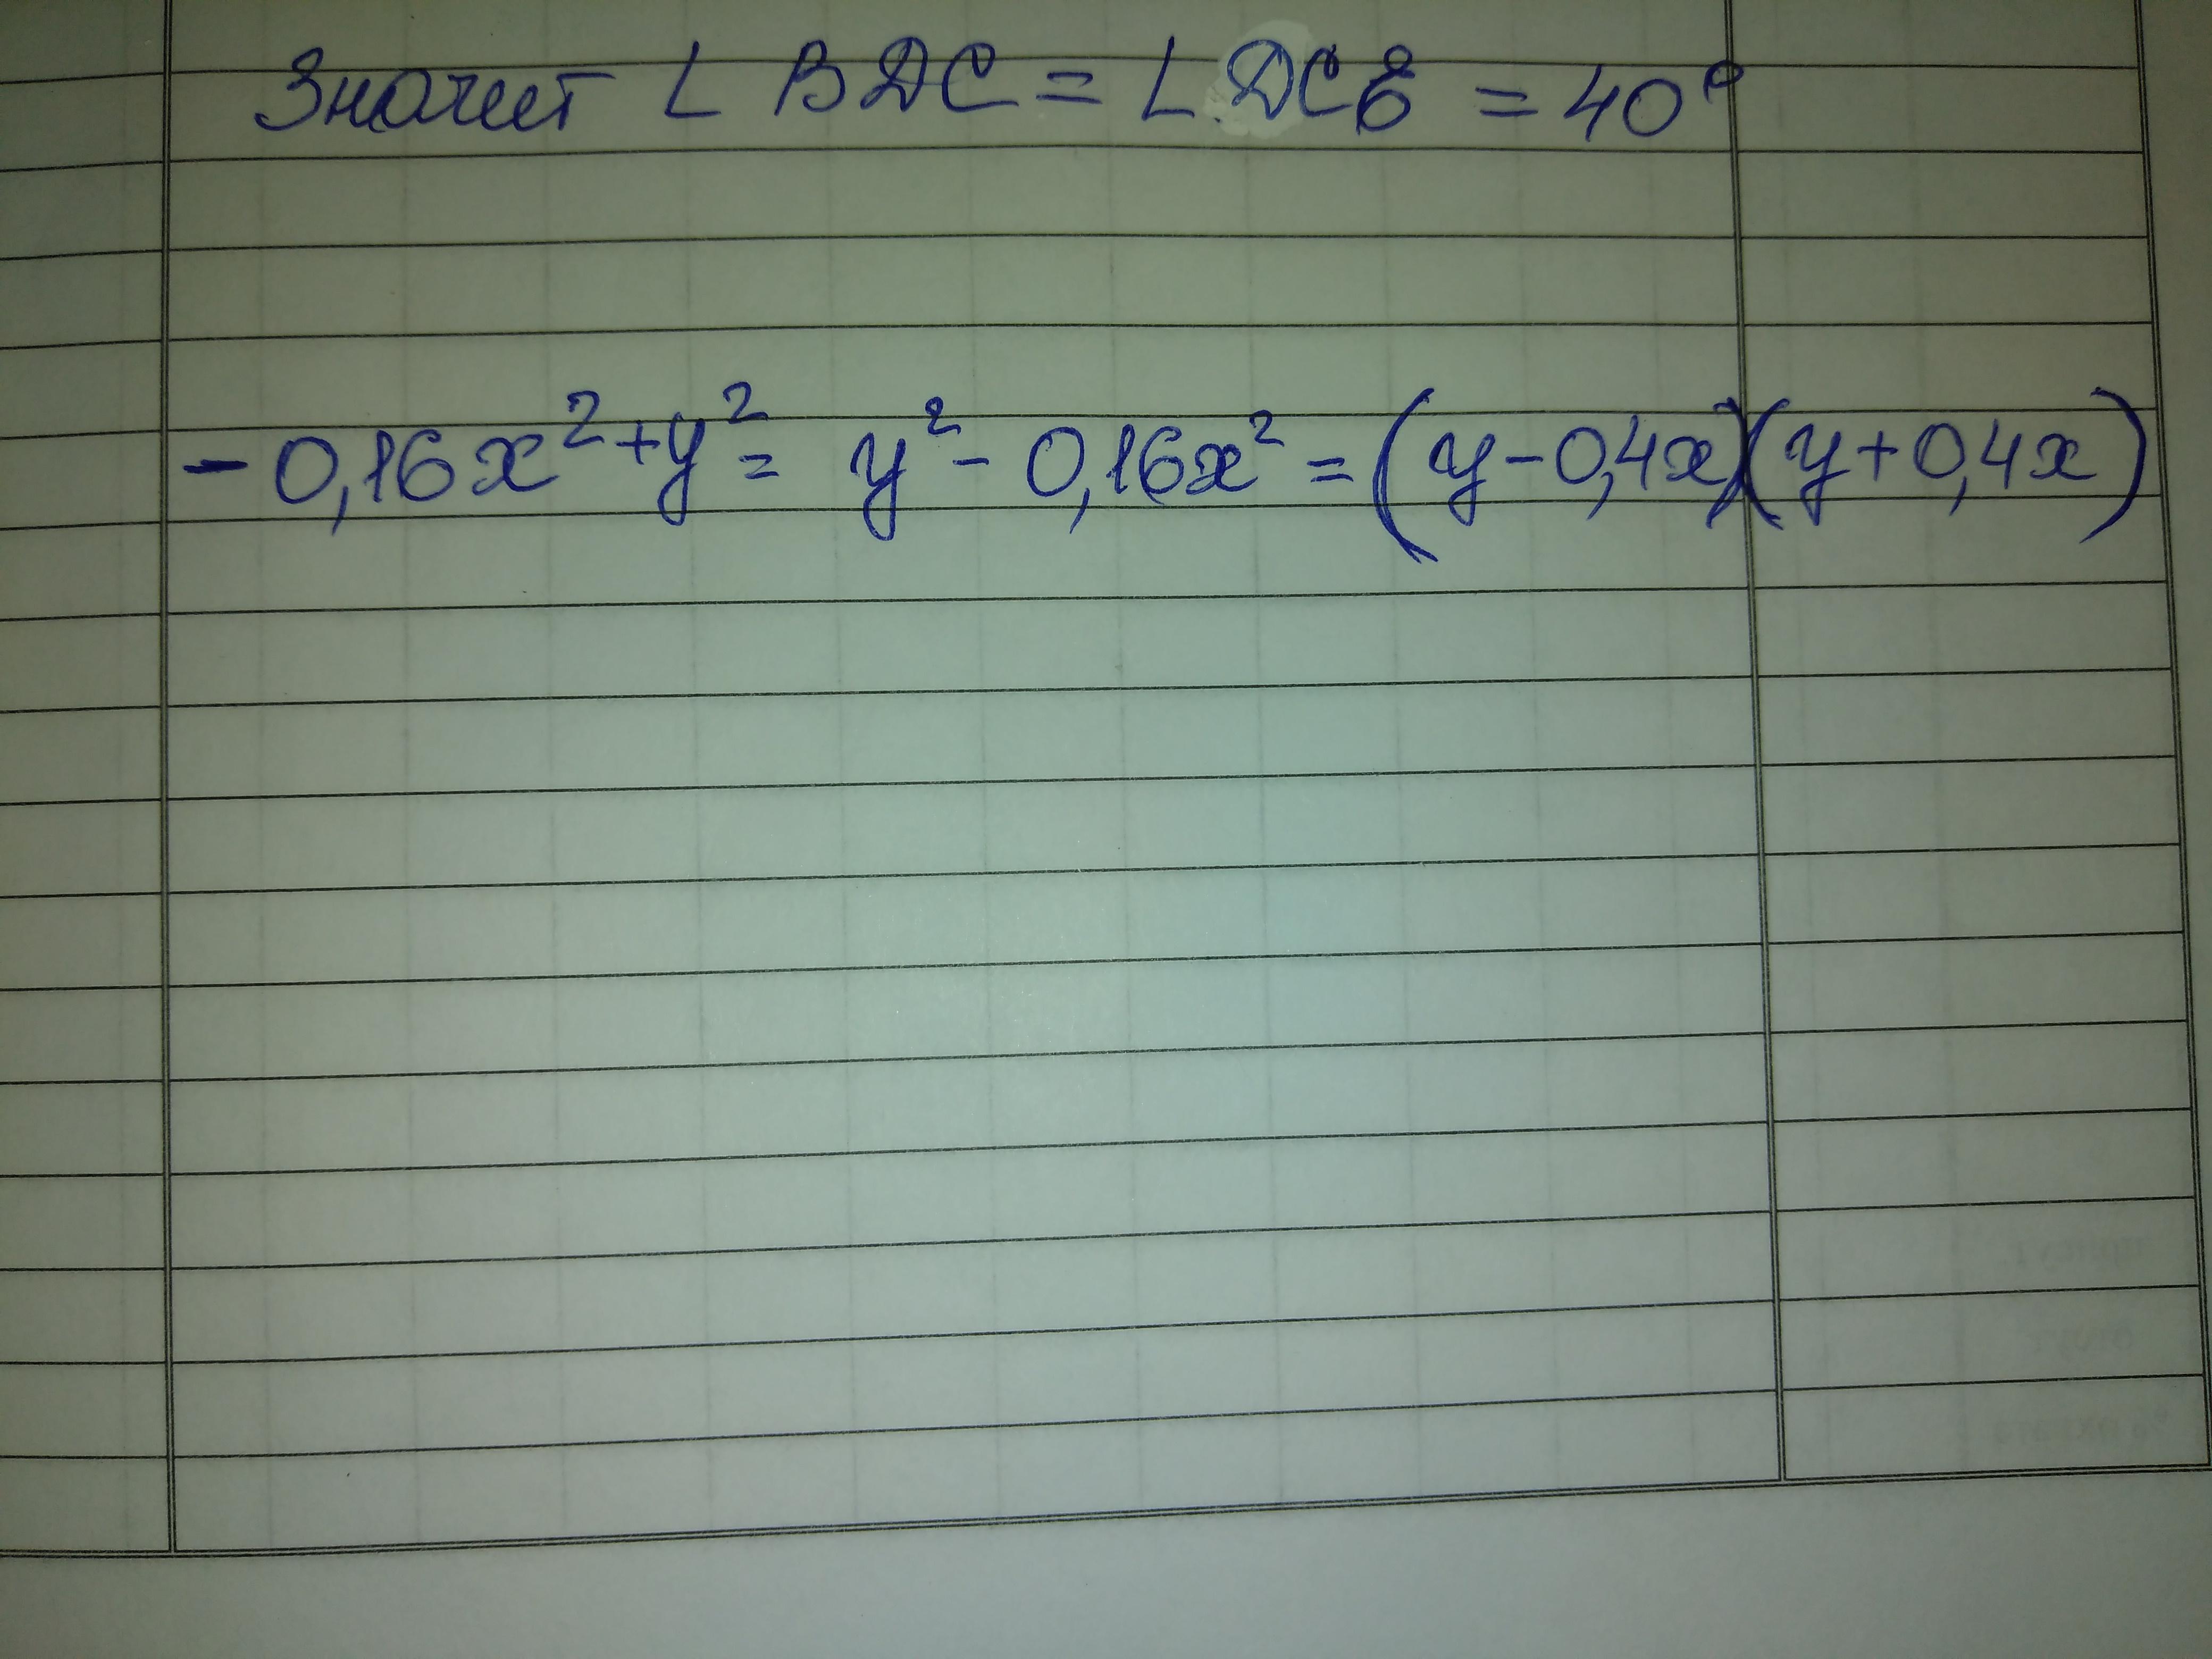 Значит ∠ BDC = ∠ DCE = 40°
- 0,16x² + y² = y² - 0,16x² = (y - 0,4x)(y + 0,4x)